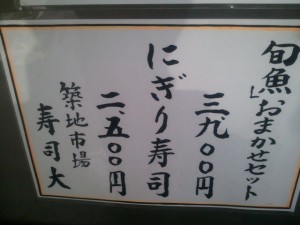 旬魚「おまかせセット
三九〇〇円
にぎり寿司
二、五〇〇円
築地市場
寿司大